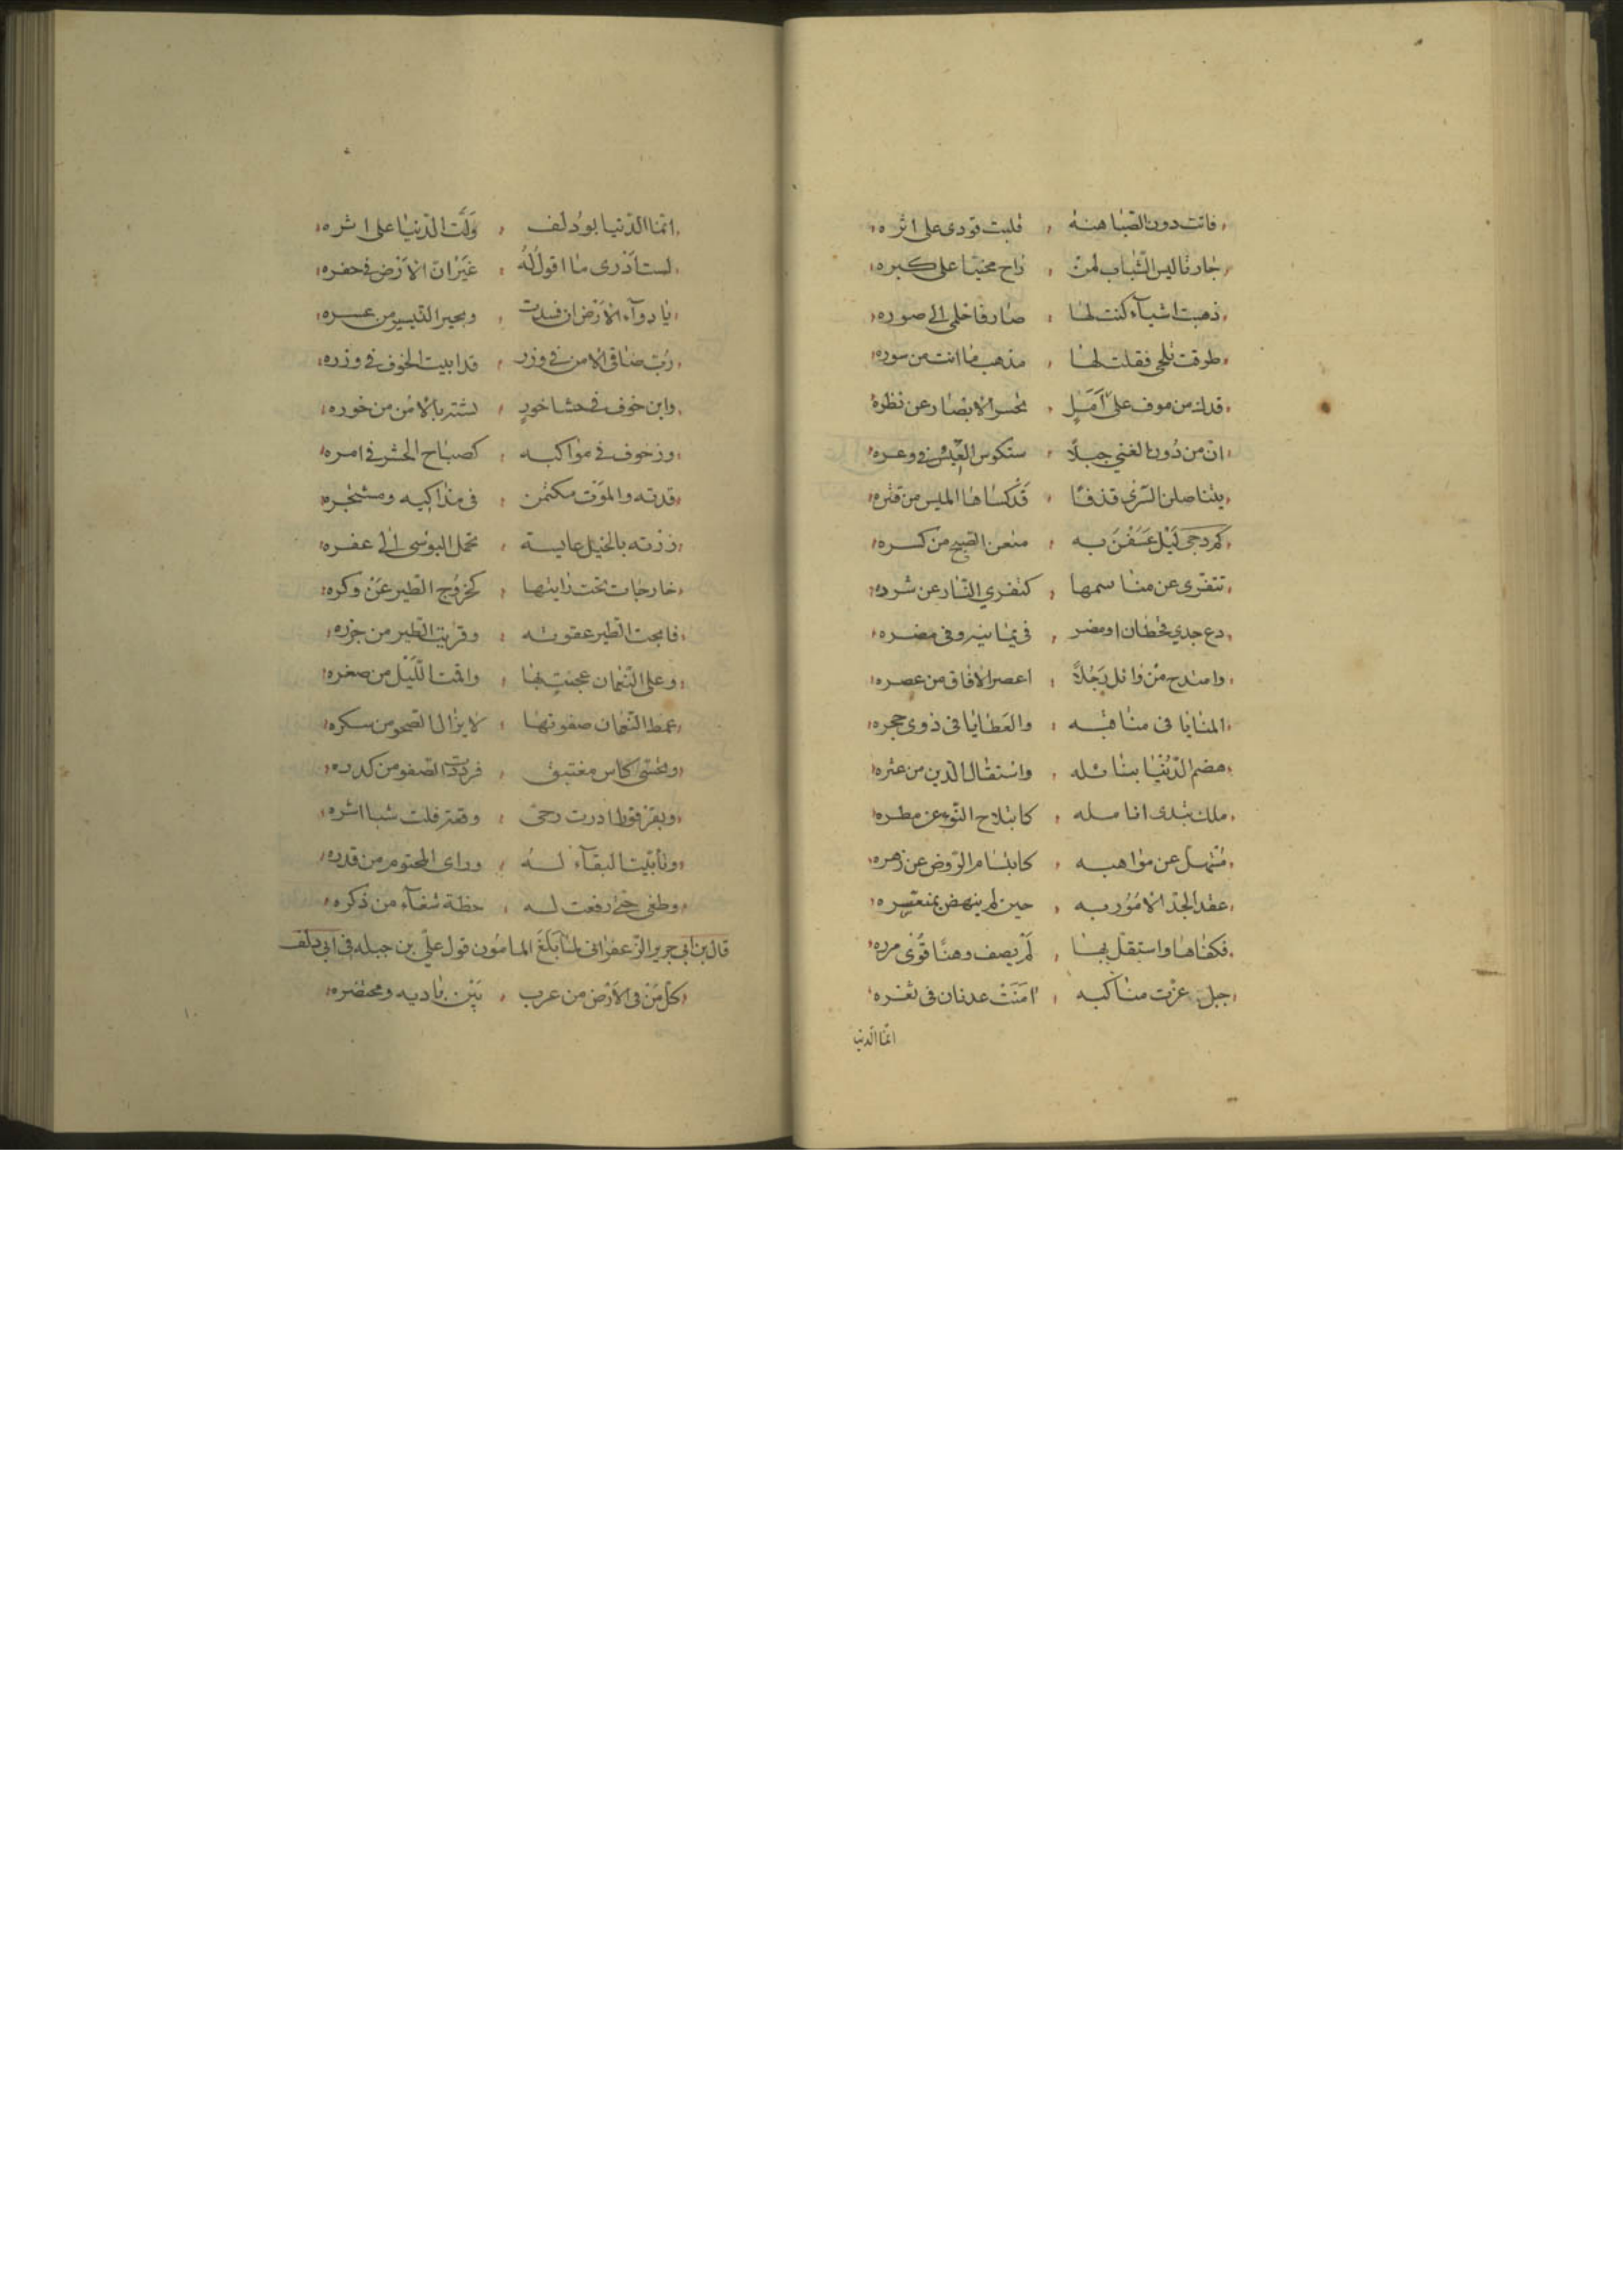 فاتت دون الصبا هنة ، قلبت فودى على اثره
جارتا ليس الشباب لمن ، راح محنيا على كبره
ذهبت اشيآء كنت لها ، صارفا حلمى الى صوره
طرقت تلحى فقلت لها ، مذهب ما انت من سوره
قدك من موف على امل ، تحسر الابصار عن نظره
ان من دون الغنى جبلا ، ستكوس العيس فى وعره
يتناصلن السرى قذفا ، قد كساها الميس من قتره
كم دجى ليل عسفن به ، منعن الصبح من كسره
تتفرى عن مناسمها ، كتفري النار عن شرره
دع جدي قحطان او مضر ، فى يمانيه وفى مضره
وامتدح من وائل رجلا ، اعصر الافاق من عصره
المنايا فى مناقبه ، والعطايا فى ذوى حجره
هضم الدنيا بنائله ، واستقال الدين من عثره
ملك تندى انامله ، كانبلاج النوء عن مطره
مستهل عن مواهبه ، كابتسام الروض عن زهره
عقد الجد الامور به ، حين لم ينهض بمنتعره
فكفاها واستقل بها ، لم يصف وهنا قوى مرره
جبل عزت مناكبه ، امنت عدنان فى ثغره
انما الدنيا
انما الدنيا ابو دلف ، ولت الدنيا على اثره
لست ادرى ما اقول له ، غير ان الارض فى خفره
يا دوآء الارض ان فسدت ، ومجير اليسر من عسره
رب ضافى الامن فى وزر ، قد ابيت الخوف فى وزره
وابن خوف فى حشا خور ، لشتر بالامن من خوره
وزخوف فى مواكبه ، كصباح الحشر فى امره
قدته والموت مكتمن ، فى مذاكيه ومشتجره
زرته بالخيل عابسة ، تحمل البؤسى الى عفره
خارجات تحت رايتها ، كخروج الطير عن وكره
فابحت الطير عقوته ، وقريت الطير من جزره
وعلى النعمان عجت بها ، واقمت الليل من صغره
غمط النعمان صفوتها ، لا يزال الصحو من سكره
وتحسى كاس مغتبق ، فرددت الصفو من كدره
وبقرقور ادرت رحى ، وقعة فلت شبا اشره
وتأبيت البقآء له ، وراى المحتوم من قدره
وطغى حتى رفعت له ، خطة شنعآء من ذكره
قال بن ابى جرير الزعفرانى لما بلغ المامون قول على بن جبله فى ابى دلف
كل من فى الارض من عرب ، بين باديه ومحتضره